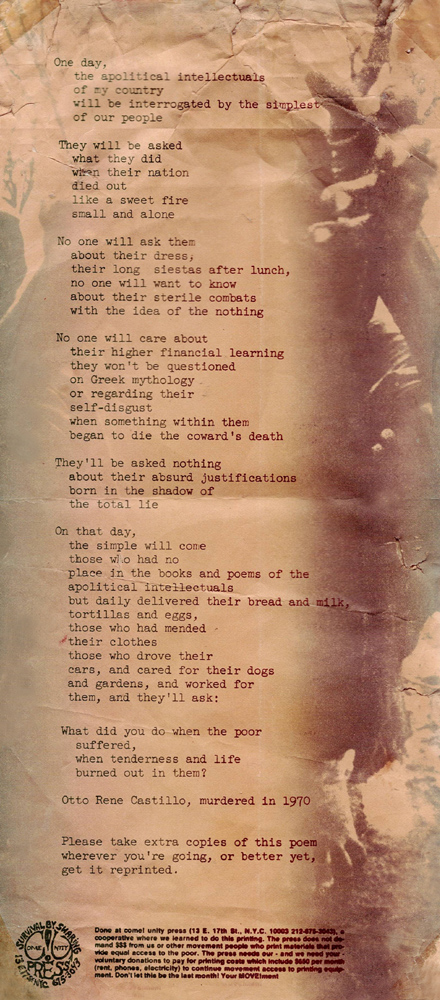 One day,
the apolitical intellectuals
of my country
will be interrogated by the simplest
of our people
They will be asked
what they did
when their nation
died out
like a sweet fire
small and alone
No one will ask them
about their dress,
their long siestas after lunch,
no one will want to know
about their sterile combats
with the idea of the nothing
No one will care about
their higher financial learning
they won't be questioned
on Greek mythology
or regarding their
self-disgust
when something within them
began to die the coward's death
They'll be asked nothing
about their absurd justifications
born in the shadow of
the total lie
On that day,
the simple will come
those who had no
place in the books and poems of the
apolitical intellectuals
but daily delivered their bread and milk,
tortillas and eggs,
those who had mended
their clothes
those who drove their
cars, and cared for their dogs
and gardens, and worked for
them, and they'll ask:
What did you do when the poor
suffered,
when tenderness and life
burned out in them?
Otto Rene Castillo, murdered in 1970
Please take extra copies of this poem
wherever you're going, or better yet,
get it reprinted.
SURVIVAL BY SHARING
COME UNITY
PRESS
13 E 17 NYC
Done at come! unity press (13 E. 17th St., N.Y.C. 10003 212-675-3043), a
cooperative where we learned to do this printing. The press does not de-
mand $$$ from us or other movement people who print materials that pro-
vide equal access to the poor. The press needs our - and we need your -
voluntary donations to pay for printing costs which include per month
(rent, phones, electricity) to continue movement access to printing equip-
ment. Don't let this be the last month! Your MOVEment